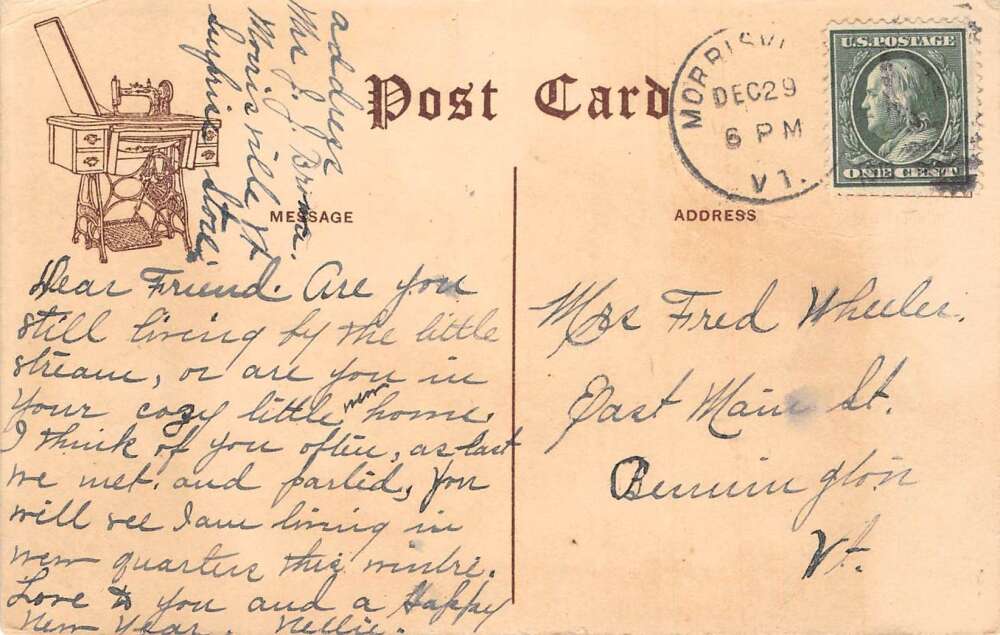 address
Mrs J. J. Brown.
Morrisville Vt
Surprise Store.
Post Card
MORRISVI
DEC 29
6 PM
VT.
U.S. POSTAGE
ONE CENT
MESSAGE
Dear Friend. Are you
still living by the little
stream, or are you in
your cozy little new home.
I think of you often, as last
we met. and parted, You
will see I am living in
new quarters this winter.
Love to you and a Happy
New Year. Nellie.
ADDRESS
Mrs Fred Wheeler.
East Main St.
Bennington
Vt.